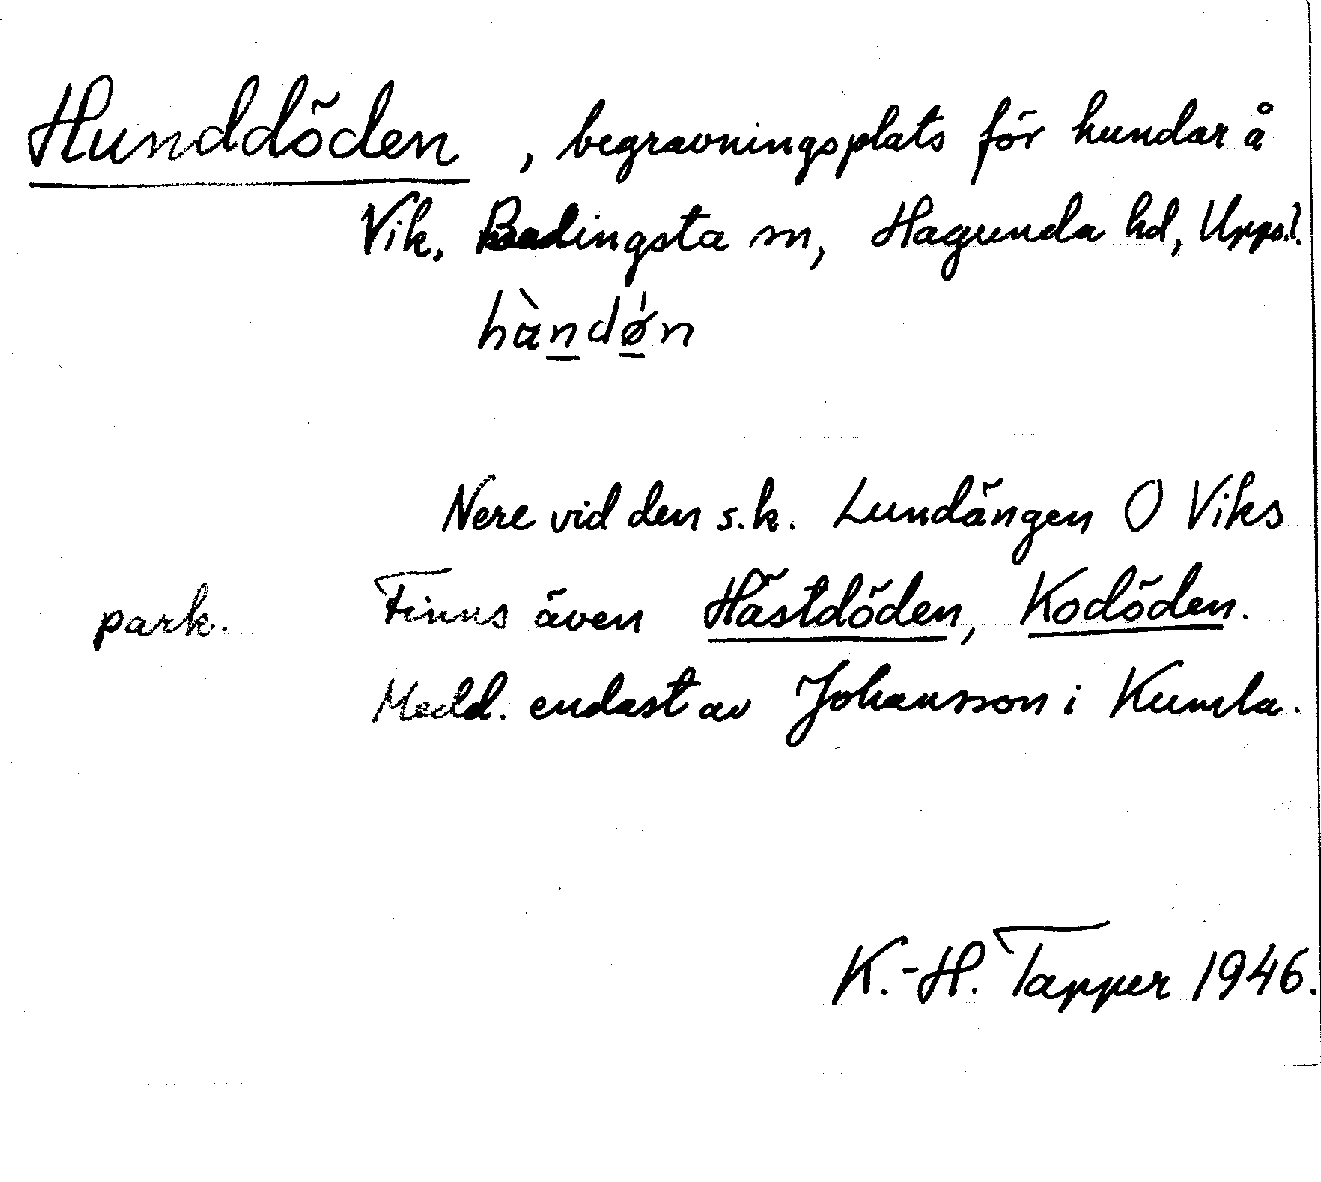 Hunddöden, begravningsplats för hundar å
Vik, Balingsta sn, Hagunda hd, Uppsl.
hàndǿn
Nere vid den s.k. Lundängen O Viks
park. Finns även Hästdöden, Kodöden.
Medd. endast av Johansson i Kumla.
K.-H. Tapper 1946.